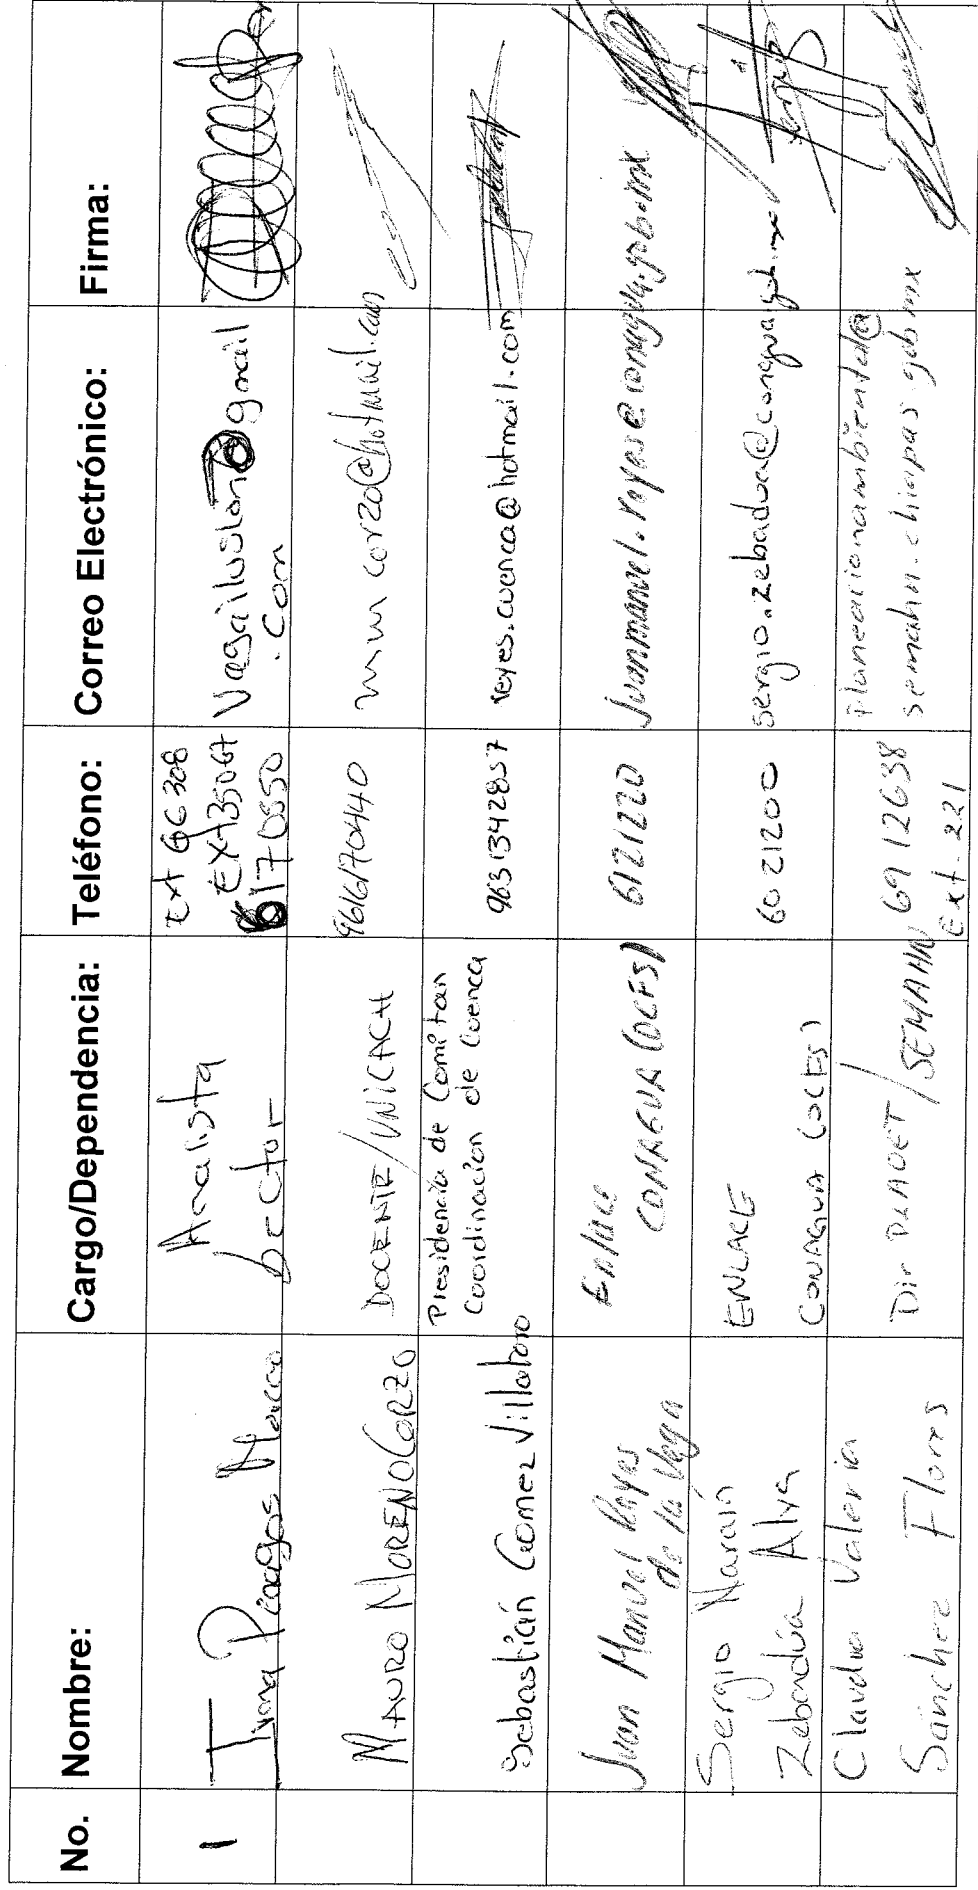 No. Nombre: Cargo/Dependencia: Teléfono: Correo Electrónico: Firma:
1
Analista
ext 66308
EXT 35067
6170550
Vagailuslon@gmail
.com
MAURO MORENO CORZO
DOCENTE/UNICACH
9616170440
mmcorzo@hotmail.com
Sebastián Gómez Villatoro
Presidencia de Comitan
Coordinacion de Cuenca
9631342857
reyes.cuenca@hotmail.com
Juan Manuel Reyes
de la Vega
Enlace
CONAGUA (OCFS)
6121220
juanmanuel.reyes@conagua.gob.mx
Sergio Naraín
Zebadúa Alva
ENLACE
CONAGUA (OCFS)
6021200
sergio.zebadua@conagua.gob.mx
Sergio
Claudia Valeria
Sánchez Flores
Dir /SEMAHN
6912638
Ext. 221
planeacionambiental@
semahn.chiapas.gob.mx